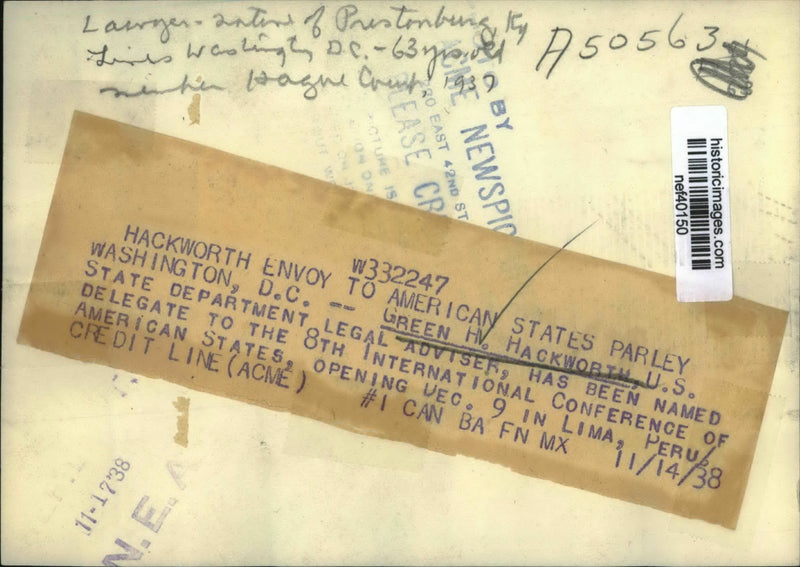 Lawyer - native of Prestonburg, Ky
Lives Washington D.C. - 63 yrs. old
member Hague Court, 1937
A50563
BY
ACME NEWSPIC
EAST 42ND ST
PICTURE IS
historicimages.com
nef40150
W332247
HACKWORTH ENVOY TO AMERICAN STATES PARLEY
WASHINGTON, D.C. -- GREEN H. HACKWORTH, U.S.
STATE DEPARTMENT LEGAL ADVISER, HAS BEEN NAMED
DELEGATE TO THE 8TH INTERNATIONAL CONFERENCE OF
AMERICAN STATES, OPENING DEC. 9 IN LIMA, PERU.
CREDIT LINE (ACME) #1 CAN BA FN MX 11/14/38
11-17'38
N.E.A